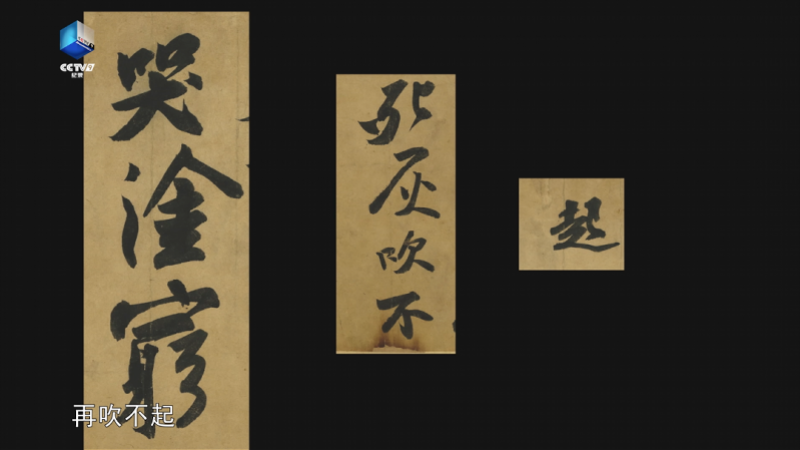 CCTV9
纪录
哭塗窮
死灰吹不
起
再吹不起